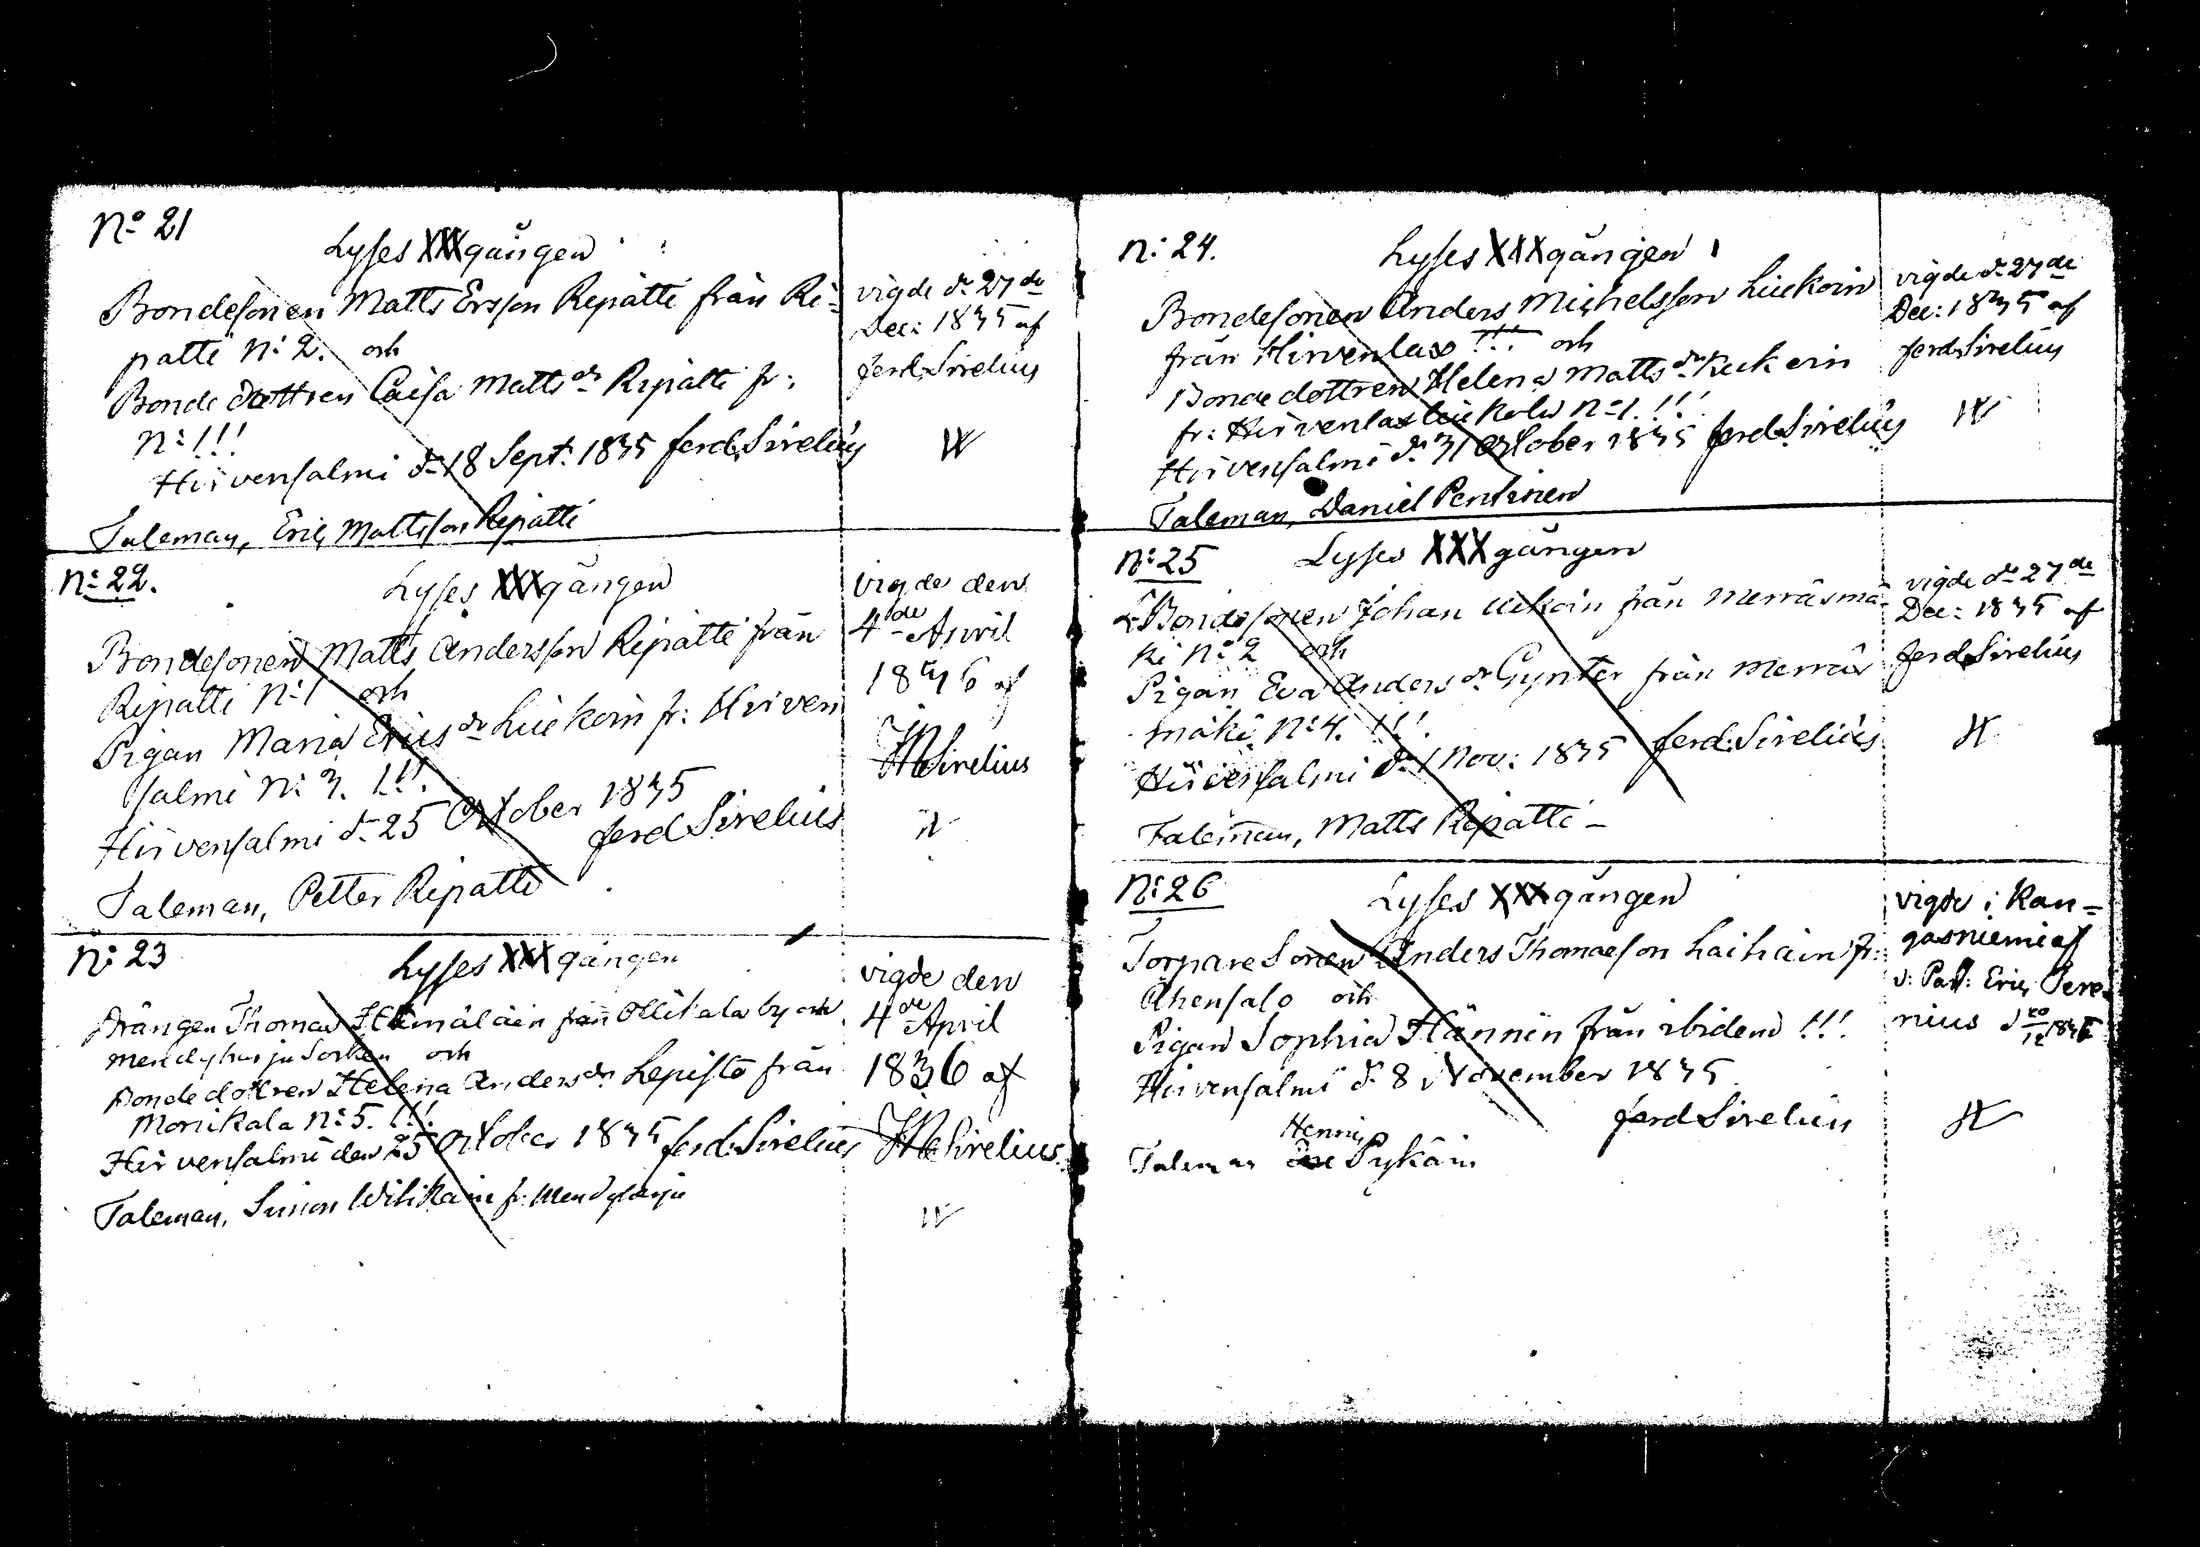 No 21
Lyses XXX gången
Bondesonen Matts Ersson Ripatti från Ri=
patti N: 2. och
Bonde dottren Caisa Matts dr Ripatti fr:
N: 1 !!!
Hirvensalmi dn 18 Sept: 1835 Ferd. Sirelius
Taleman, Eric Mattsson Ripatti
vigde dn 27de
Dec: 1835 af
Ferd. Sirelius
N: 22.
Lyses XXX gången
Bondesonen Matts Andersson Ripatti från
Ripatti N: 1 och
Pigan Maria Erics dr Liukoin fr: Hirven
salmi N: 3. !!!
Hirvensalmi dn 25 October 1835
Ferd Sirelius
Taleman, Petter Ripatti
vigde den
4de April
1836 af
Sirelius
N: 23
Lyses XXX gången
Drängen Thomas från Ollikala by och
och
Bonde dottren Helena Anders dr Lepistö från
Monikala N: 5. !!!
Hirvensalmi den 25 October 1835 Ferd: Sirelius
Taleman, Simon fr:
vigde den
4de April
1836 af
Sirelius
N: 24.
Lyses XXX gången
Bondesonen Anders Michelsson Liukoin
från Hirvenlax !!! och
Bondedottren Helena Matts dr
fr: Hirvenlax N: 1. !!!
Hirvensalmi dn 31 October 1835 Ferd. Sirelius
Taleman, Daniel Pentinen
vigde dn 27de
Dec: 1835 af
Ferd. Sirelius
N: 25
Lyses XXX gången
Bondesonen Johan från Merräsmä-
ki N: 2 och
Pigan Eva Anders dr Gynter från Merräs
mäki N: 4. !!!
Hirvensalmi dn 1 Nov: 1835 Ferd: Sirelius
Taleman, Matts Ripatti –
vigde dn 27de
Dec: 1835 af
Ferd. Sirelius
N: 26
Lyses XXX gången
Torpare Sonen Anders Thomaeson Laihain fr:
Ahensalo och
Pigan Sophia Hännin från ibidem !!!
Hirvensalmi d. 8 November 1835
Ferd Sirelius
Henric
Taleman Pykäin
vigde i Kan=
gasniemi af
v: Past: Eric